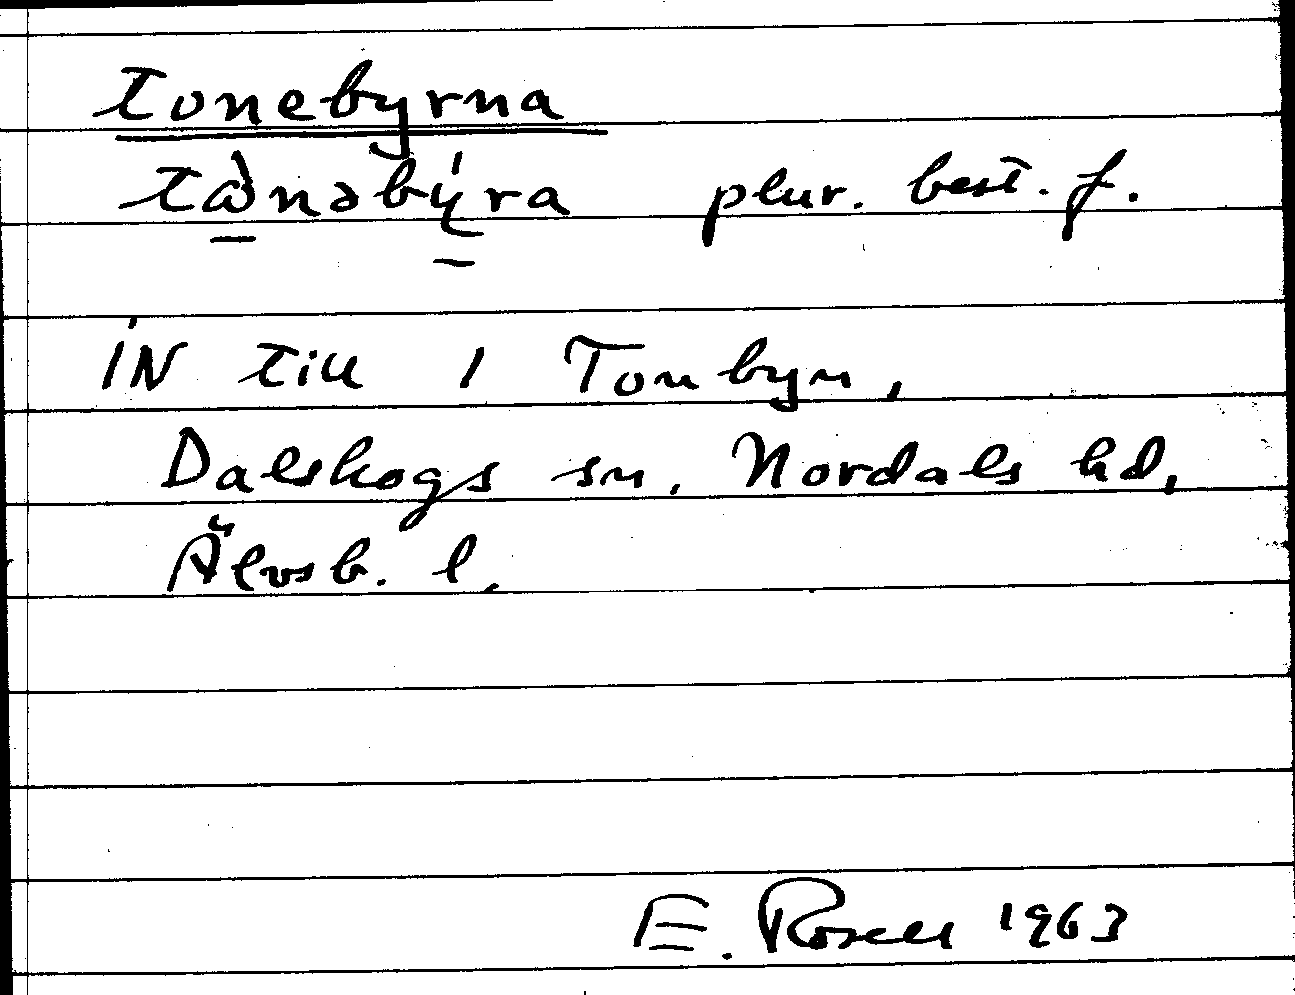 tonebyrna
tànəbýra plur. best. f.
IN till 1 Tonbyn,
Dalskogs sn, Nordals hd,
Älvsb. l.
E. Rosell 1963